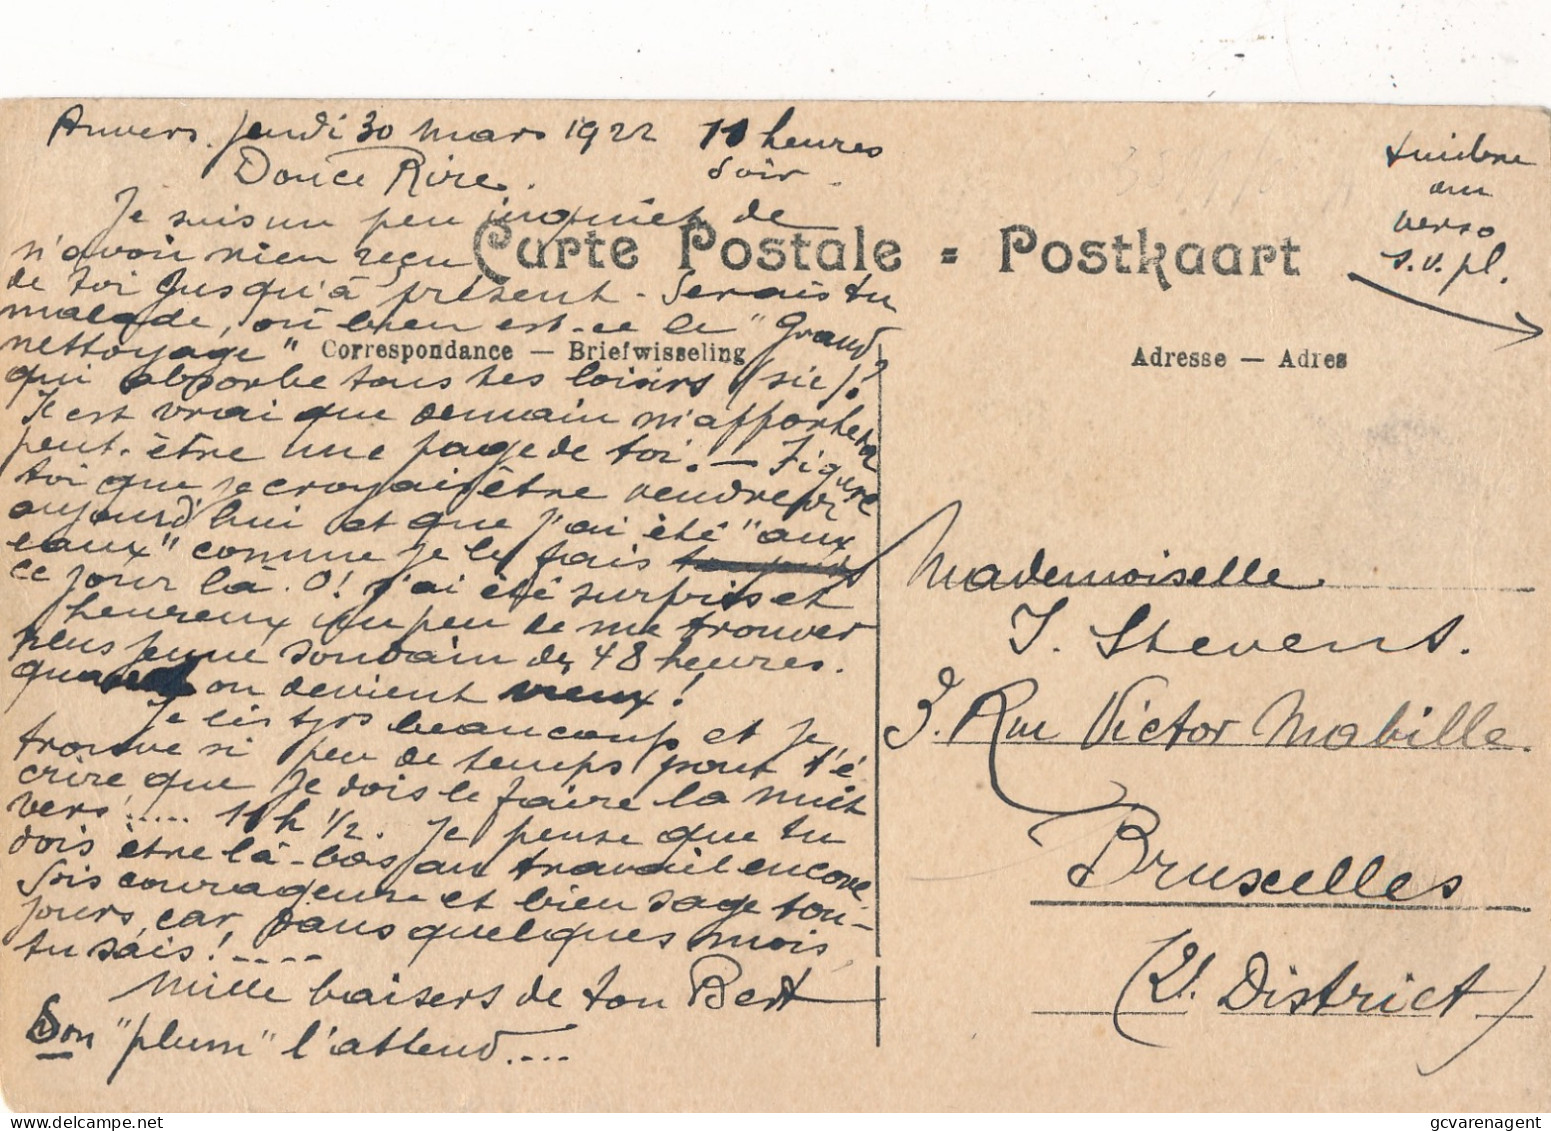 Anvers. Jeudi 30 Mars 1922 11 heures
soir.
Douce Rire.
Je suis un peu inquiet de
n'avoir rien reçu
de toi jusqu'à présent. Serais tu
malade, ou bien est-ce le "Grand
nettoyage"
qui absorbe tous tes loisirs (sic)?
Il est vrai que demain m'apportera
peut-être une page de toi. — Figure
toi que je croyais être vendredi
aujourd'hui et que j'ai été "aux
eaux" comme je le fais
ce jour là. O! j'ai été surpris et
heureux un peu de me trouver
plus jeune soudain de 48 heures.
on devient vieux!
Je lis tjrs beaucoup et je
trouve si peu de temps pour t'é
crire que je dois le faire la nuit
vers ..... 11h 1/2. Je pense que tu
dois être là-bas au travail encore
Sois courageuse et bien sage tou-
jours, car, dans quelques mois
tu sais! ----
Mille baisers de ton Bert
Son "plum" l'attend....
Carte Postale = Postkaart
Correspondance — Briefwisseling
Adresse — Adres
timbre
au
verso
s.v.pl.
Mademoiselle
J. Stevens.
3. Rue Victor Mabille.
Bruxelles
(2. District)
gcvarenagent